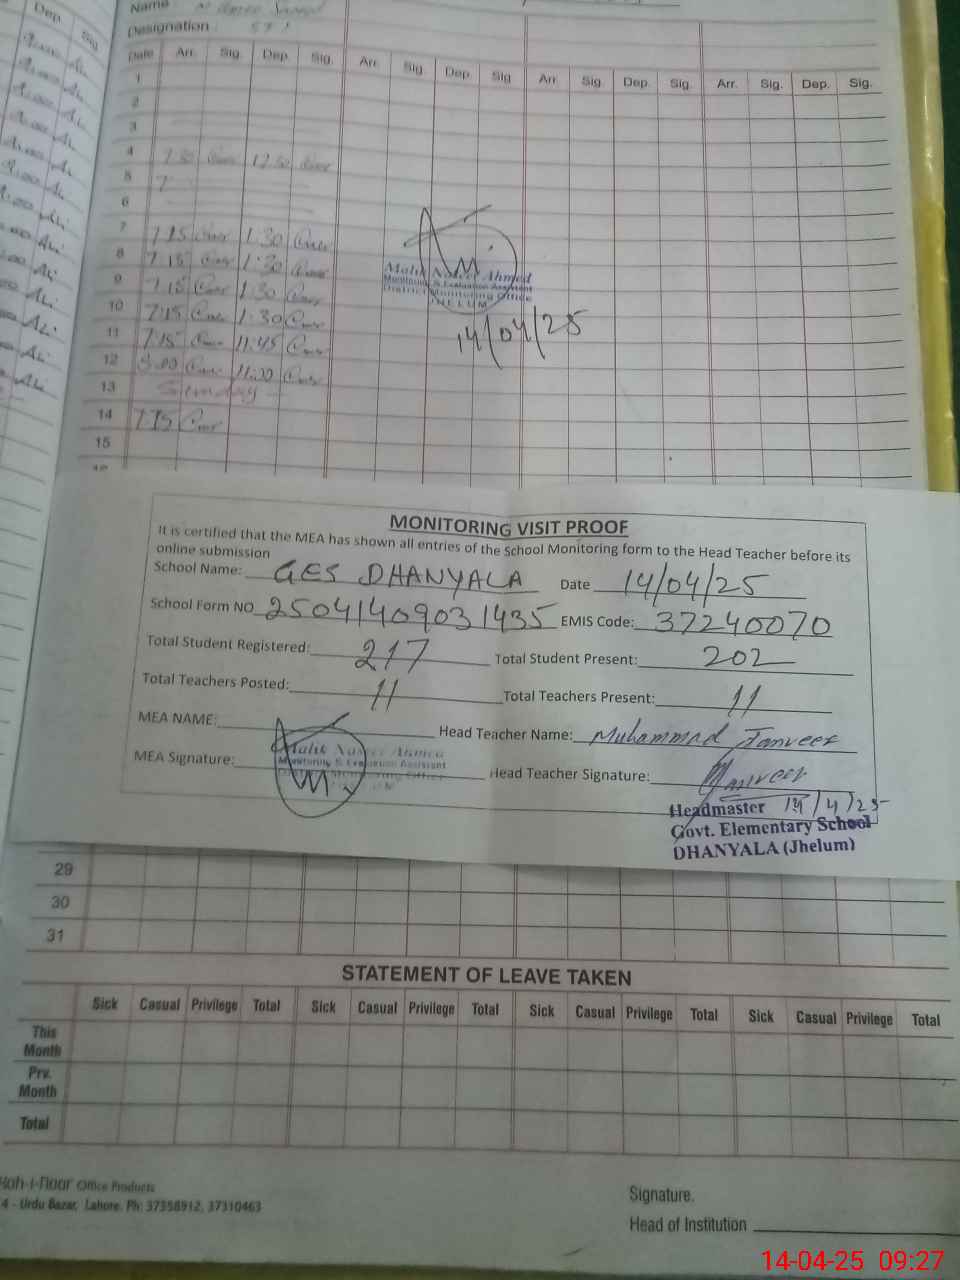 Dep. Sig.
Name :
Designation : SST
Date Arr. Sig. Dep. Sig. Arr. Sig. Dep. Sig. Arr. Sig. Dep. Sig. Arr. Sig. Dep. Sig.
1
2
3
4 7.30 12.30
5 7
6
7 7.15 1.30
8 7.15 1.30
9 7.15 1.30
10 7.15 1.30
11 7.15 11.45
12 8.00 11.00
13 Sunday
14 7.15
15
Malik Naseer Ahmed
Monitoring & Evaluation Assistant
District Monitoring Office
JHELUM
14/04/25
MONITORING VISIT PROOF
It is certified that the MEA has shown all entries of the School Monitoring form to the Head Teacher before its
online submission
School Name: GES DHANYALA Date 14/04/25
School Form NO 25041409031435 EMIS Code: 37240070
Total Student Registered: 217 Total Student Present: 202
Total Teachers Posted: 11 Total Teachers Present: 11
MEA NAME: Head Teacher Name: Muhammad Tanveer
MEA Signature: Malik Naseer Ahmed Head Teacher Signature: Tanveer
Monitoring & Evaluation Assistant
District Monitoring Office
Headmaster 14/4/25
Govt. Elementary School
DHANYALA (Jhelum)
29
30
31
STATEMENT OF LEAVE TAKEN
Sick Casual Privilege Total Sick Casual Privilege Total Sick Casual Privilege Total Sick Casual Privilege Total
This Month
Prv. Month
Total
Koh-i-Noor Office Products
4 - Urdu Bazar, Lahore. Ph: 37358912, 37310463
Signature.
Head of Institution
14-04-25 09:27